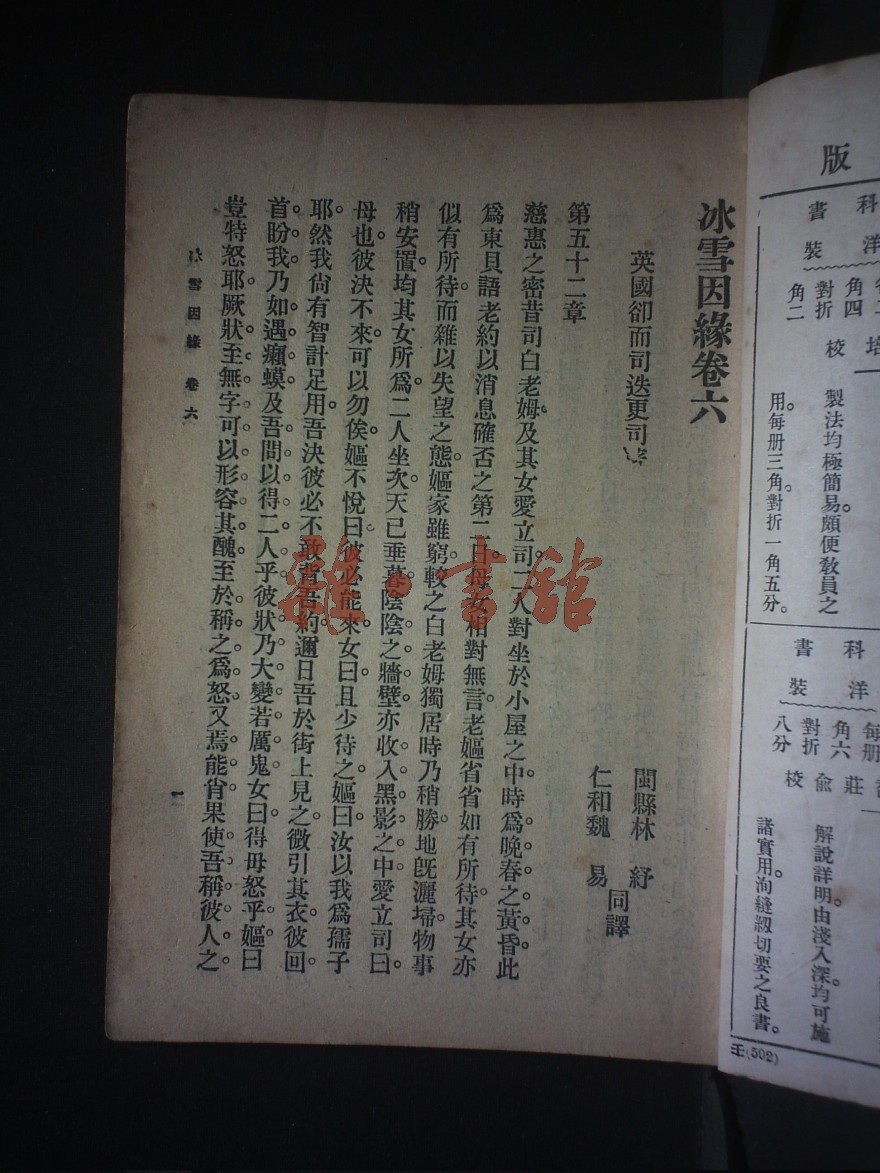 版
科 書
洋 裝
角四
對折
角二
校
製法均極簡易。頗便教員之
用。每册三角。對折一角五分。
科 書
洋 裝
每册
角六
對折
八分
莊
俞
校
解說詳明。由淺入深。均可施
諸實用。洵縫紉切要之良書。
壬(592)
冰雪因緣卷六
英國卻而司迭更司著
閩縣林 紓
仁和魏 易
同譯
第五十二章
慈惠之密昔司白老姆。及其女愛立司。二人對坐於小屋之中。時爲晚春之黃昏。此
爲東貝語老約以消息確否之第二日。母女相對無言。老嫗省省如有所待。其女亦
似有所待。而雜以失望之態。嫗家雖窮。較之白老姆獨居時乃稍勝。地旣灑埽。物事
稍安置。均其女所爲。二人坐次。天已垂暮。陰陰之牆壁亦收入黑影之中。愛立司曰。
母也。彼決不來。可以勿俟。嫗不悅曰。彼必能來。女曰。且少待之。嫗曰。汝以我爲孺子
耶。然我尙有智計足用。吾決彼必不敢背吾約。邇日吾於街上見之。微引其衣。彼回
首盼我。乃如遇癩蟆。及吾問以得二人乎。彼狀乃大變。若厲鬼。女曰。得毋怒乎。嫗曰。
豈特怒耶。厥狀至無字可以形容其醜。至於稱之爲怒。又焉能肖。果使吾稱彼人之
冰雪因緣 卷六
一
雜·書館